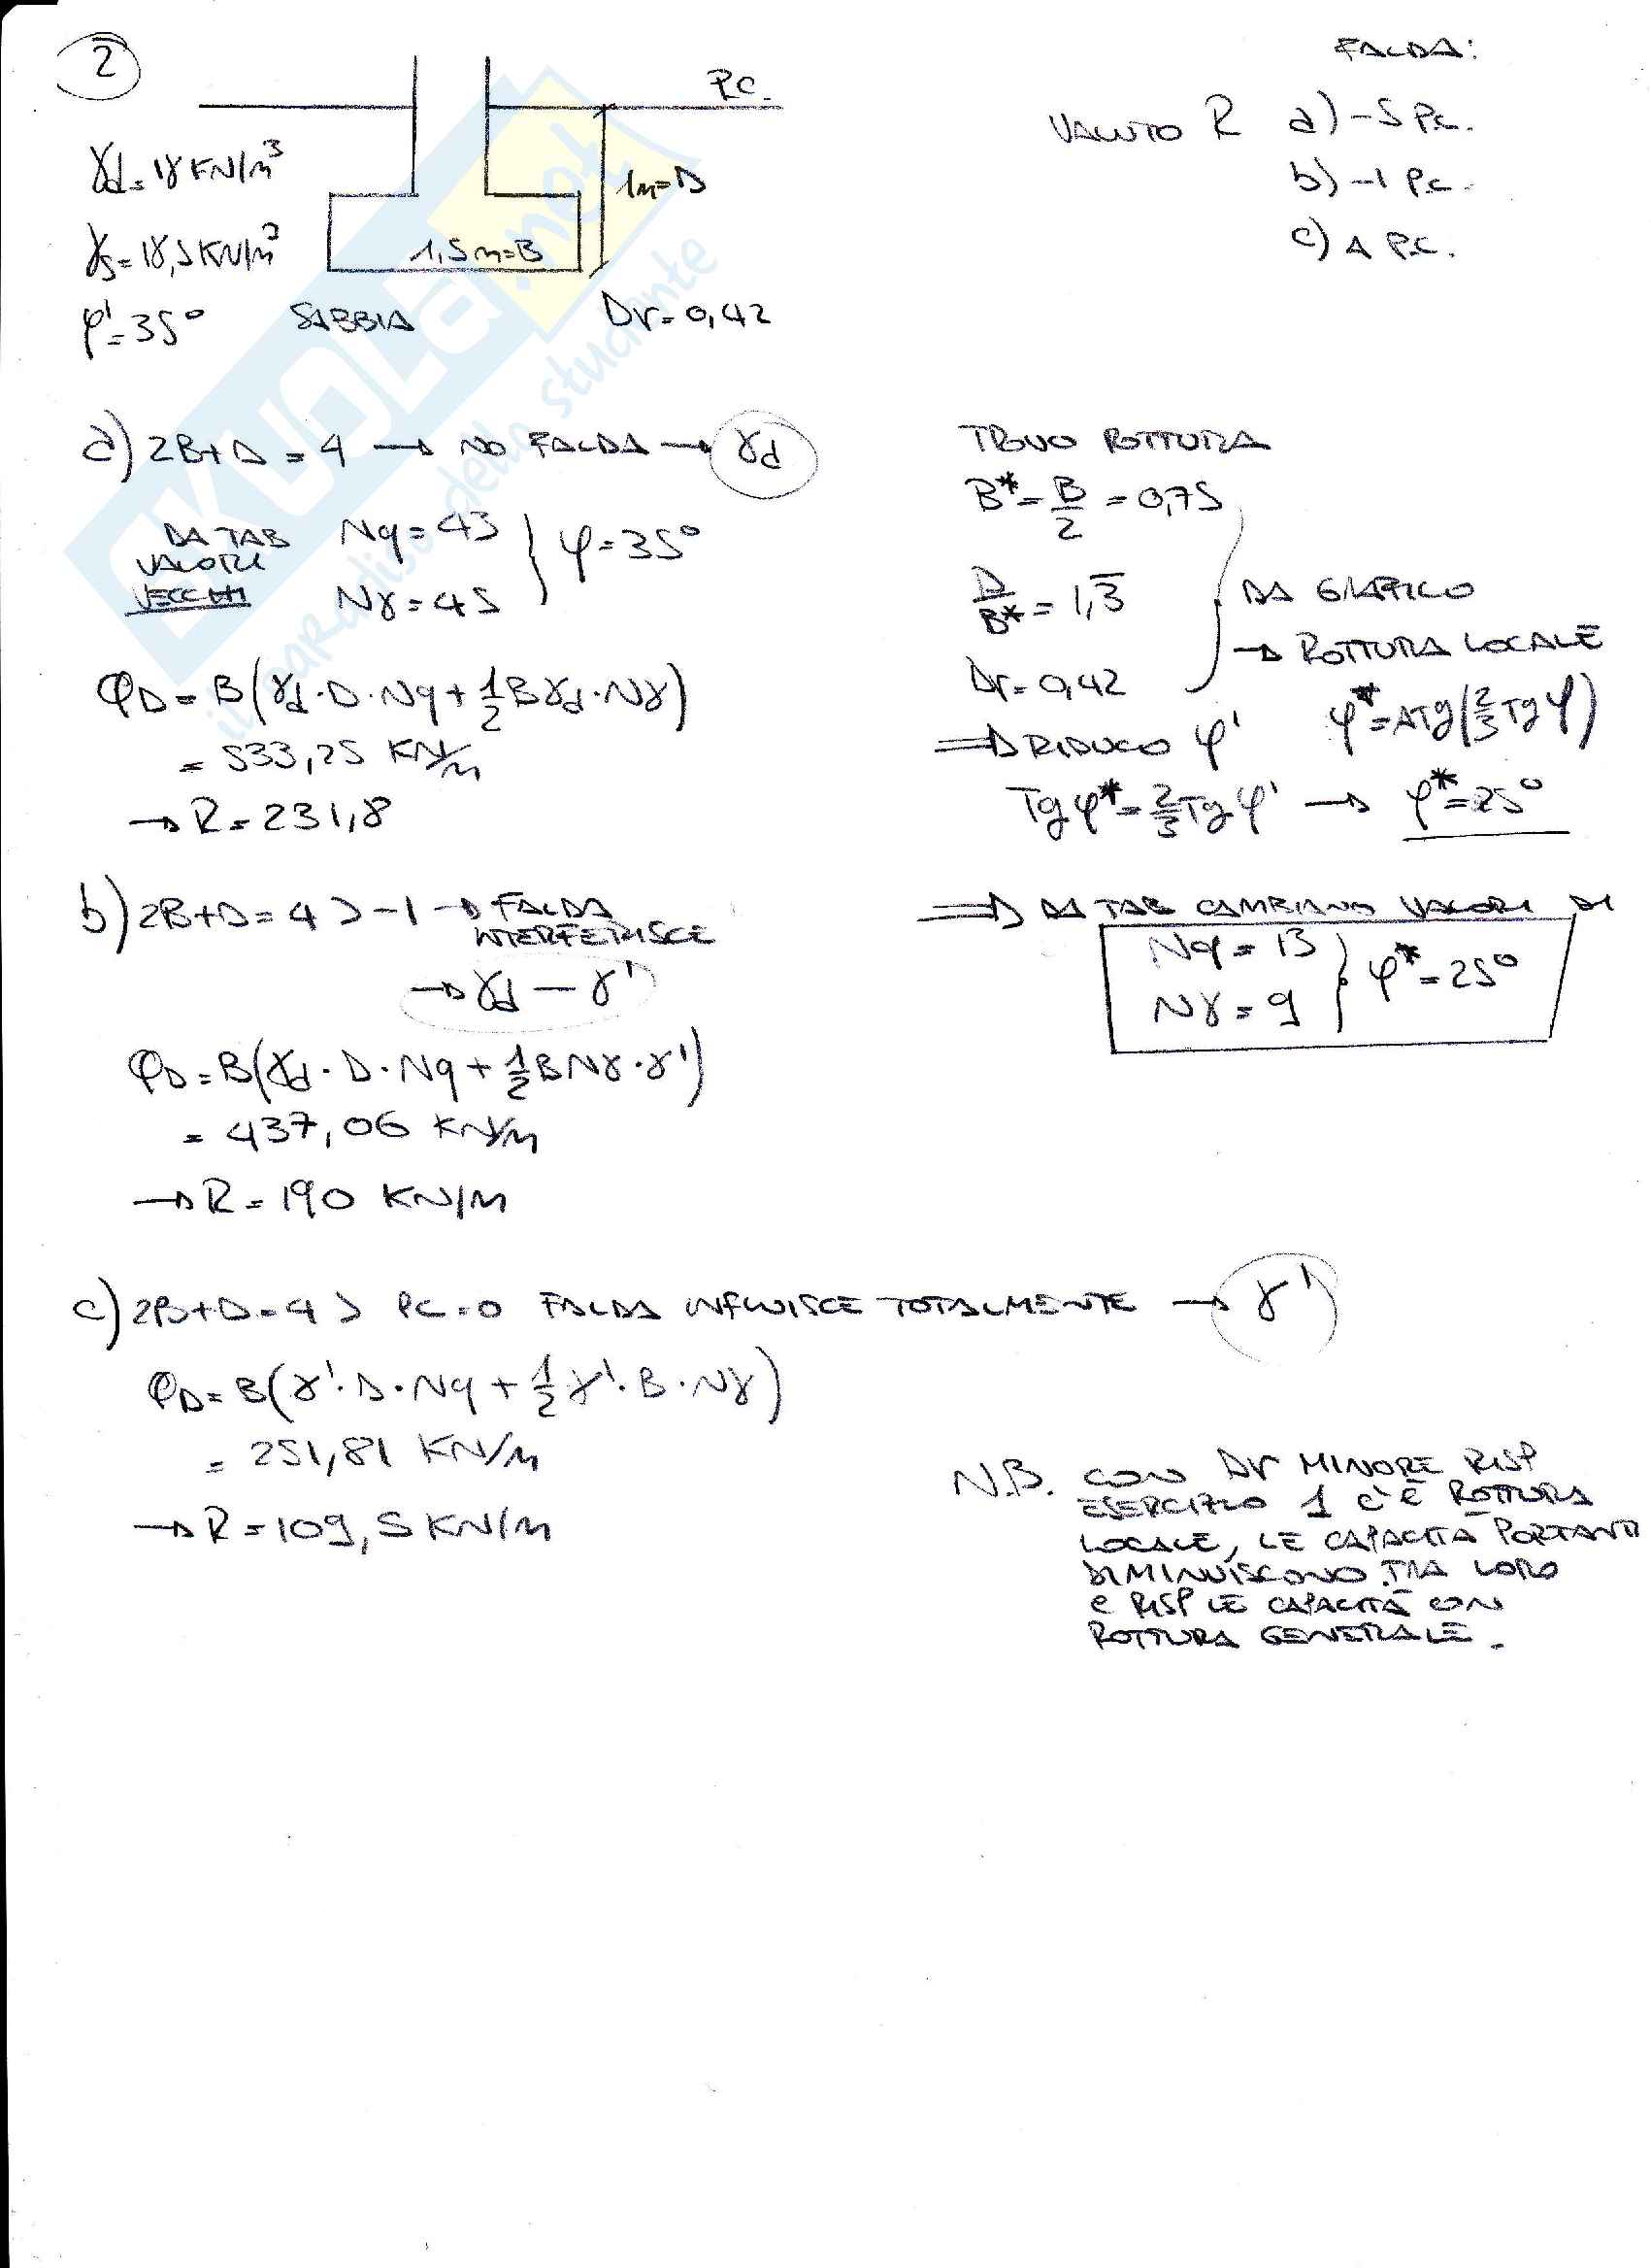 2
P.C.
FALDA:
VALUTO R a) -5 P.C.
b) -1 P.C.
c) A P.C.
γd = 18 KN/m³
1m=D
γs = 18,5 KN/m³
1,5m=B
φ'=35° SABBIA Dr=0,42
SKUOLA.net
il paradiso dello studente
a) 2B+D = 4 → NO FALDA → γd
DA TAB
VALORI
VECCHI
Nq = 43
Nγ = 45
} φ=35°
φD = B(γd·D·Nq + 1/2 Bγd·Nγ)
= 533,25 KN/m
→ R = 231,8
TROVO ROTTURA
B* = B/2 = 0,75
D/B* = 1,3̅
Dr = 0,42
DA GRAFICO
→ ROTTURA LOCALE
⇒ RIDUCO φ' φ*=ATg(2/3 Tgφ)
Tgφ* = 2/3 Tgφ' → φ*=25°
⇒ DA TAB CAMBIANO VALORI DI
Nq = 13
Nγ = 9
} φ*=25°
b) 2B+D = 4 > -1 → FALDA
INTERFERISCE
→ γd – γ'
φD = B(γd·D·Nq + 1/2 BNγ·γ')
= 437,06 KN/m
→ R = 190 KN/m
c) 2B+D = 4 > PC = 0 FALDA INFLUISCE TOTALMENTE → γ'
φD = B(γ'·D·Nq + 1/2 γ'·B·Nγ)
= 251,81 KN/m
→ R = 109,5 KN/m
N.B. CON Dr MINORE RISP
ESERCIZIO 1 C'È ROTTURA
LOCALE, LE CAPACITÀ PORTANTI
DIMINUISCONO TRA LORO
e RISP LE CAPACITÀ CON
ROTTURA GENERALE.